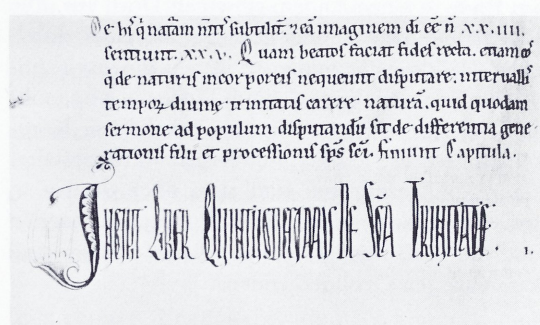 De his q̇ natām mētis subtilit̄. ⁊ eā imaginem di ēē n̄ .xx.iiii.
sentiunt. .xx.v. Quam beatos faciat fides recta. etiam eos
q̇ de naturis incorporeis nequeunt disputare: interuallis
tempoꝝ diuine trinitatis carere naturā. quid quodam
sermone ad populum disputandū sit de differentia gene
rationis filii et processionis sp̄s sc̄i. finiunt Capitula.
INCIPIT LIBER QUINTUSDECIMUS DE SCĀ TRINITATE. 1.